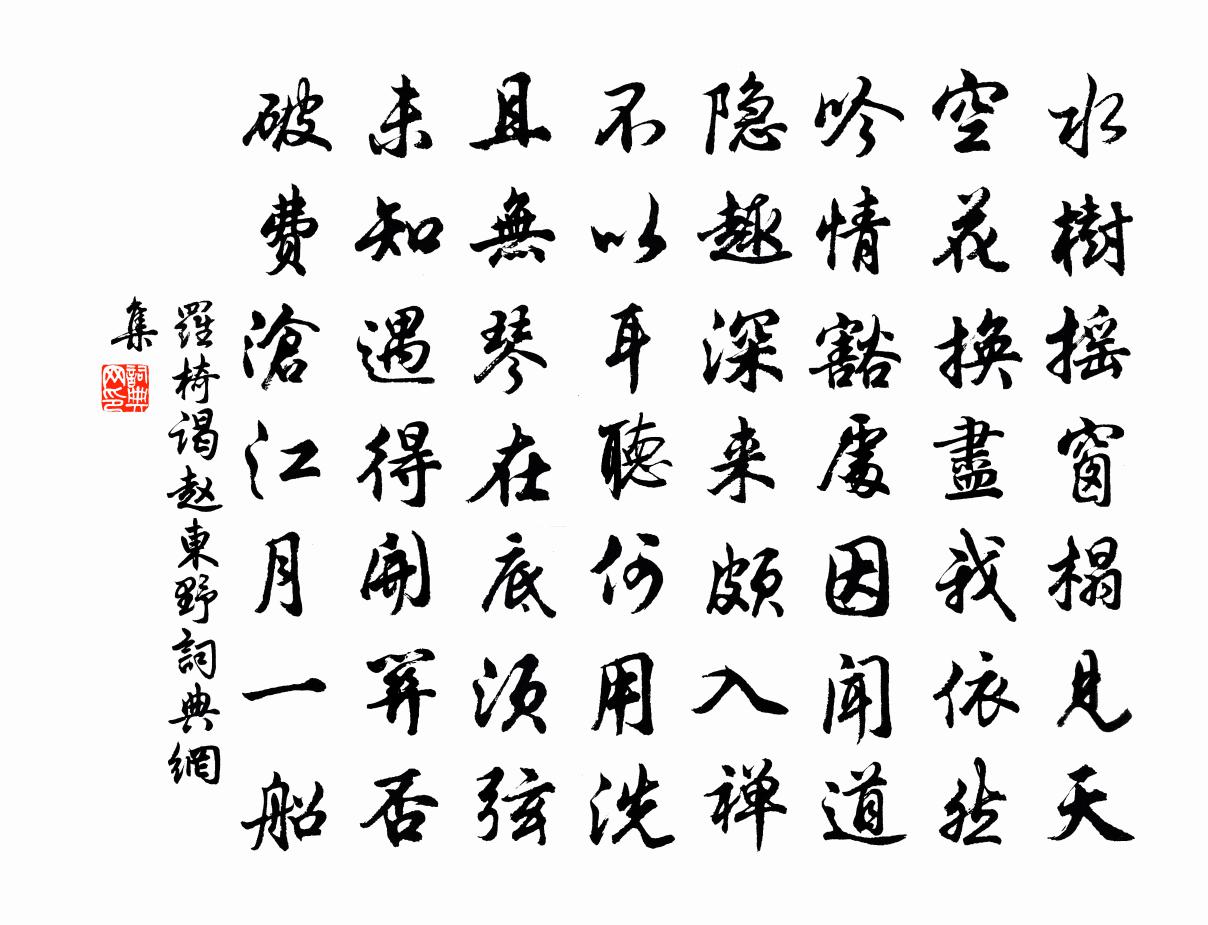 水樹摇窗榻見天
空花換盡我依然
吟情豁處因闻道
隐趣深来頗入禅
不以耳聽何用洗
且無琴在底须弦
未知遇得開笄否
破费滄江月一船
羅椅谒赵東野詞典網
集
詞典网印